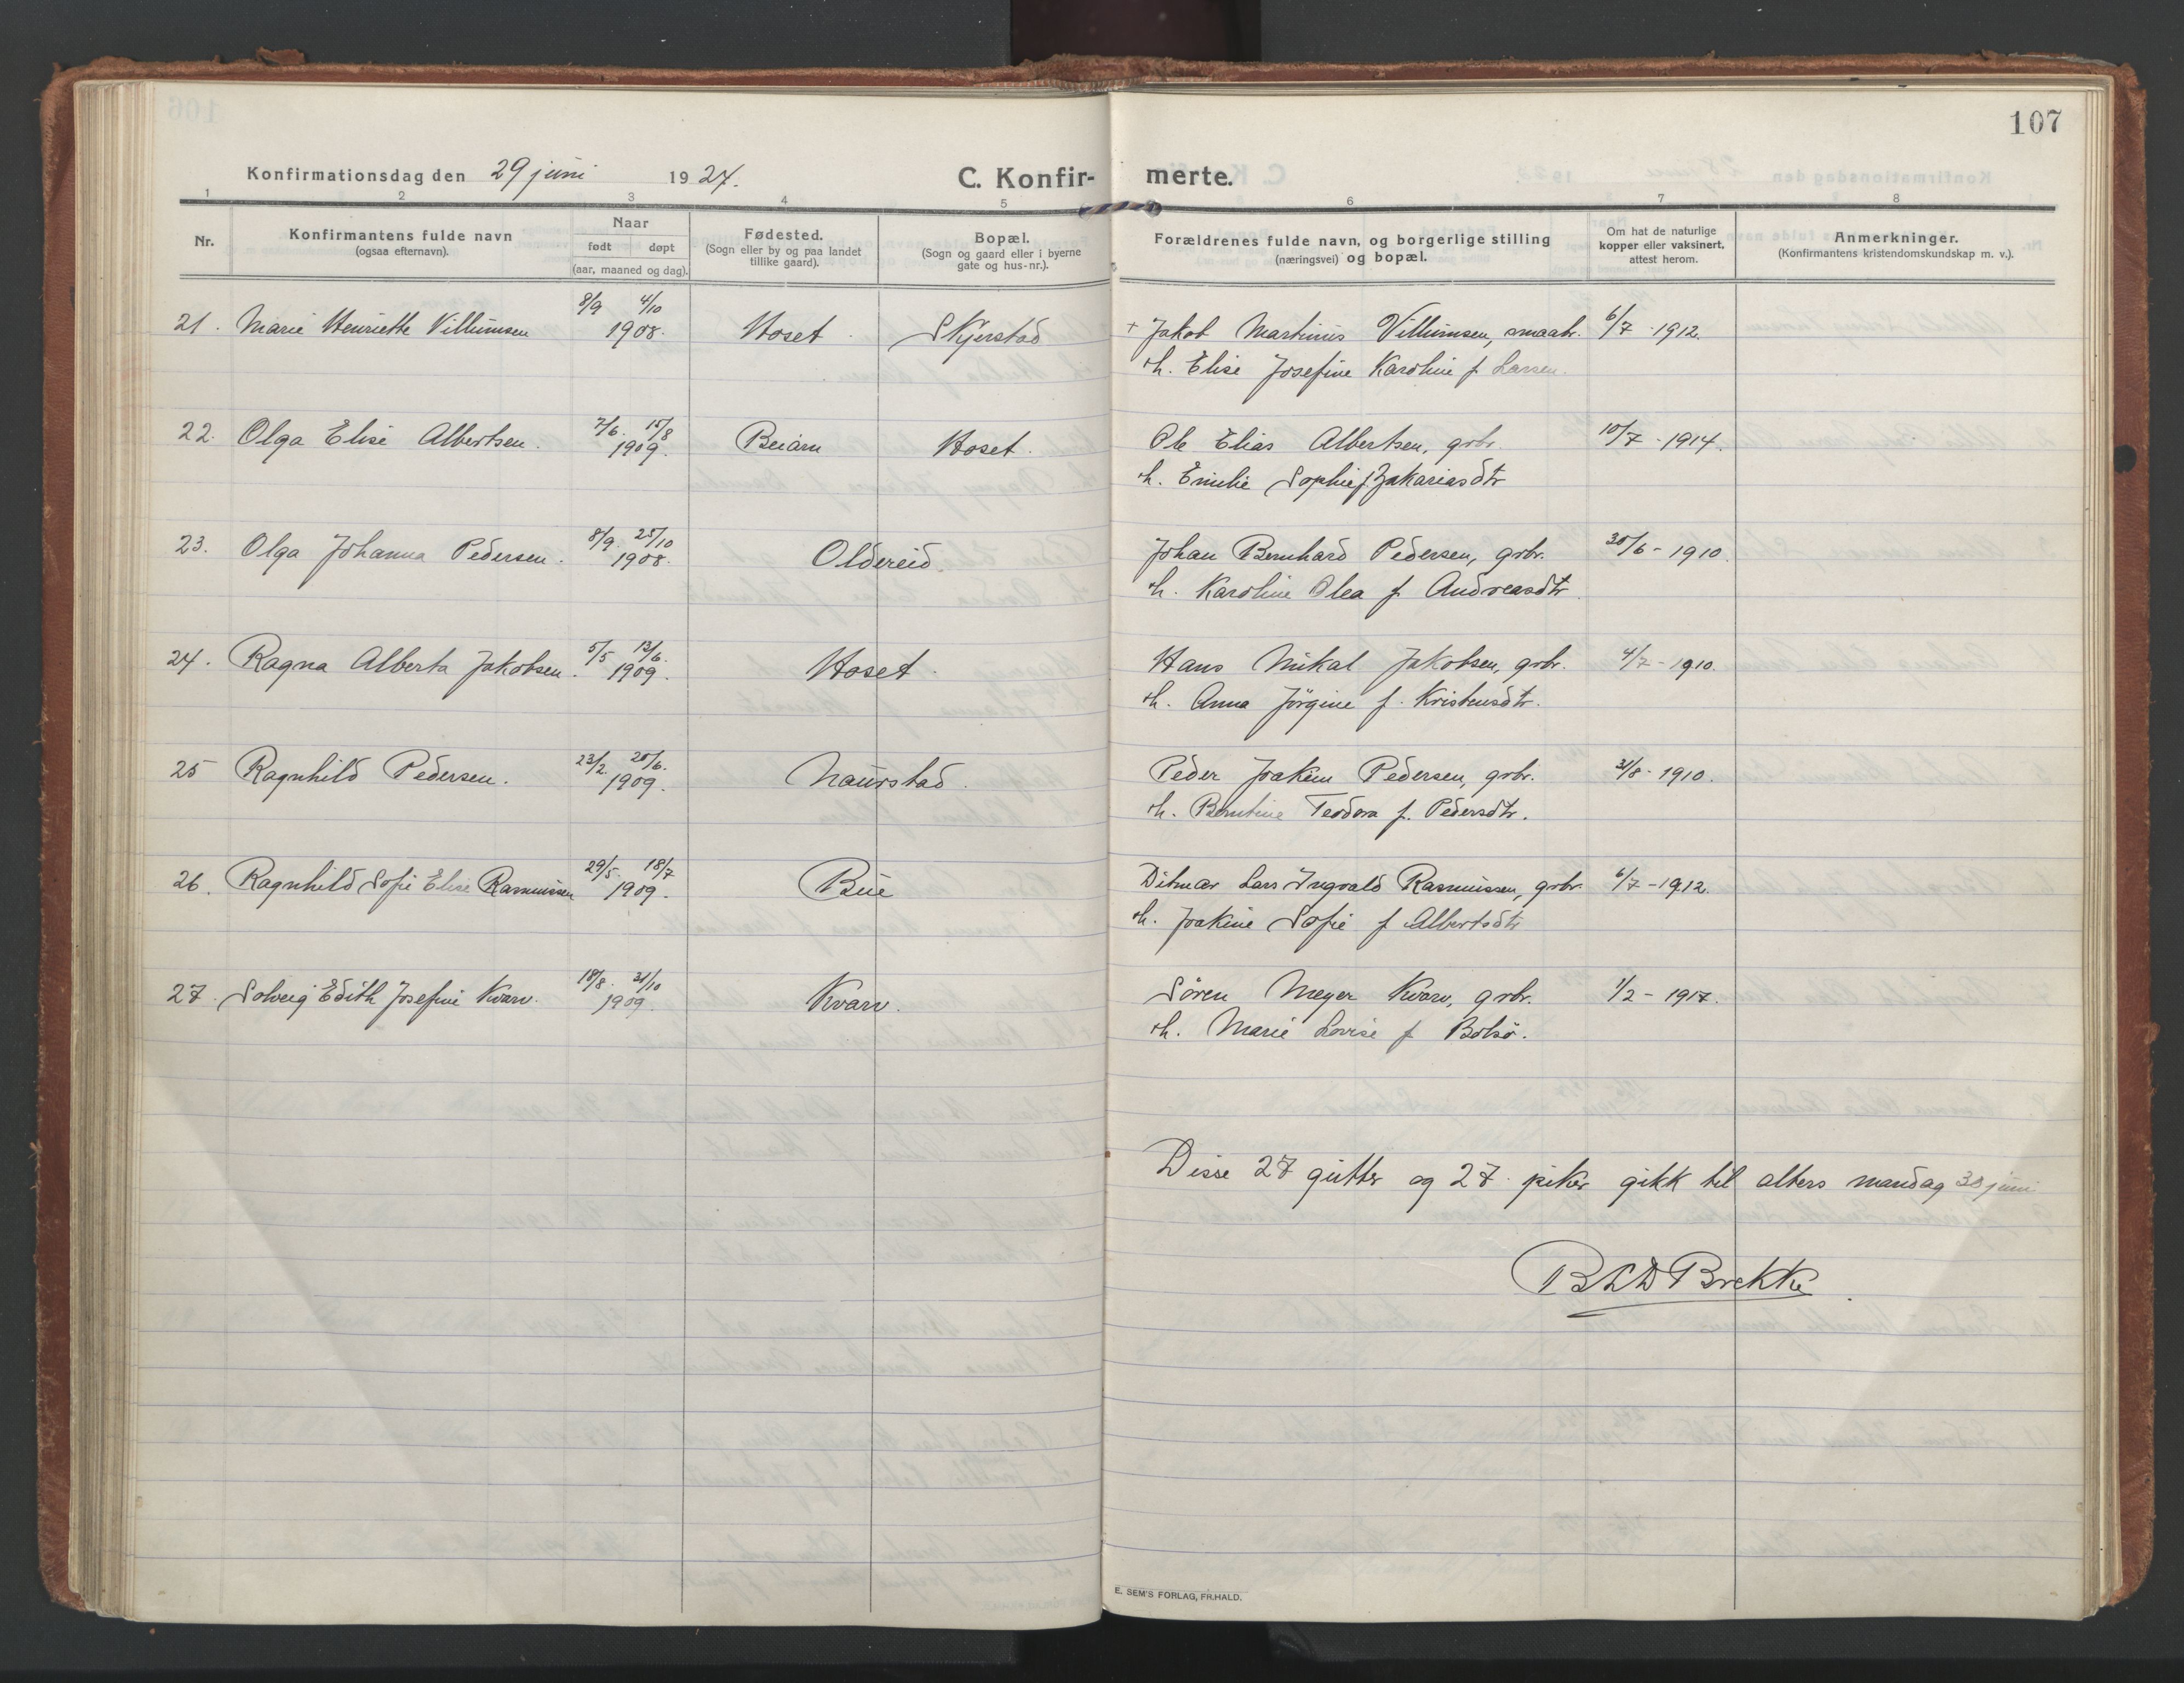 107
Konfirmationsdag den 29 juni 1924.
C. Konfir-merte.
1 2 3 4 5 6 7 8
Nr.
Konfirmantens fulde navn
(ogsaa efternavn).
Naar
født døpt
(aar, maaned og dag).
Fødested.
(Sogn eller by og paa landet
tillike gaard).
Bopæl.
(Sogn og gaard eller i byerne
gate og hus-nr.).
Forældrenes fulde navn, og borgerlige stilling
(næringsvei) og bopæl.
Om hat de naturlige
kopper eller vaksinert,
attest herom.
Anmerkninger.
(Konfirmantens kristendomskundskap m. v.).
8/9 4/10
21. Marie Henriette Villumsen 1908. Hoset. Skjerstad + Jakob Martinus Villumsen, smaabr. 6/7-1912.
h. Elise Josefine Karoline f. Larsen.
7/6. 15/8
22. Olga Elise Albertsen. 1909. Beiarn Hoset. Ole Elias Albertsen, grbr. 10/7-1914.
h. Emilie Sophie f. Zakariasdtr
8/9. 25/10
23. Olga Johanna Pedersen. 1908. Oldereid. Johan Bernhard Pedersen, grbr. 30/6-1910.
h. Karoline Olea f Andreasdtr.
5/5 13/6.
24. Ragna Alberta Jakobsen. 1909. Hoset. Hans Mikal Jakobsen, grbr. 4/7-1910.
h. Anna Jörgine f. Kristensdtr.
23/2. 20/6.
25 Ragnhild Pedersen. 1909. Naurstad. Peder Joakim Pedersen, grbr. 31/8-1910.
h. Berntine Teodora f. Pedersdtr.
29/5. 18/7
26. Ragnhild Sofie Elise Rasmussen 1909. Bue Ditmar Lars Ingvald Rasmussen, grbr. 6/7-1912.
h. Joakine Sofie f Albertsdtr
18/8. 31/10
27. Solveig Edith Josefine Kvarv. 1909. Kvarv. Sören Meyer Kvarv, grbr. 1/2-1917.
h. Marie Lovise f Bolsö.
Disse 27 gutter og 27 piker gikk til alters mandag 30 juni
Brekke
E. SEM'S FORLAG, FR.HALD.